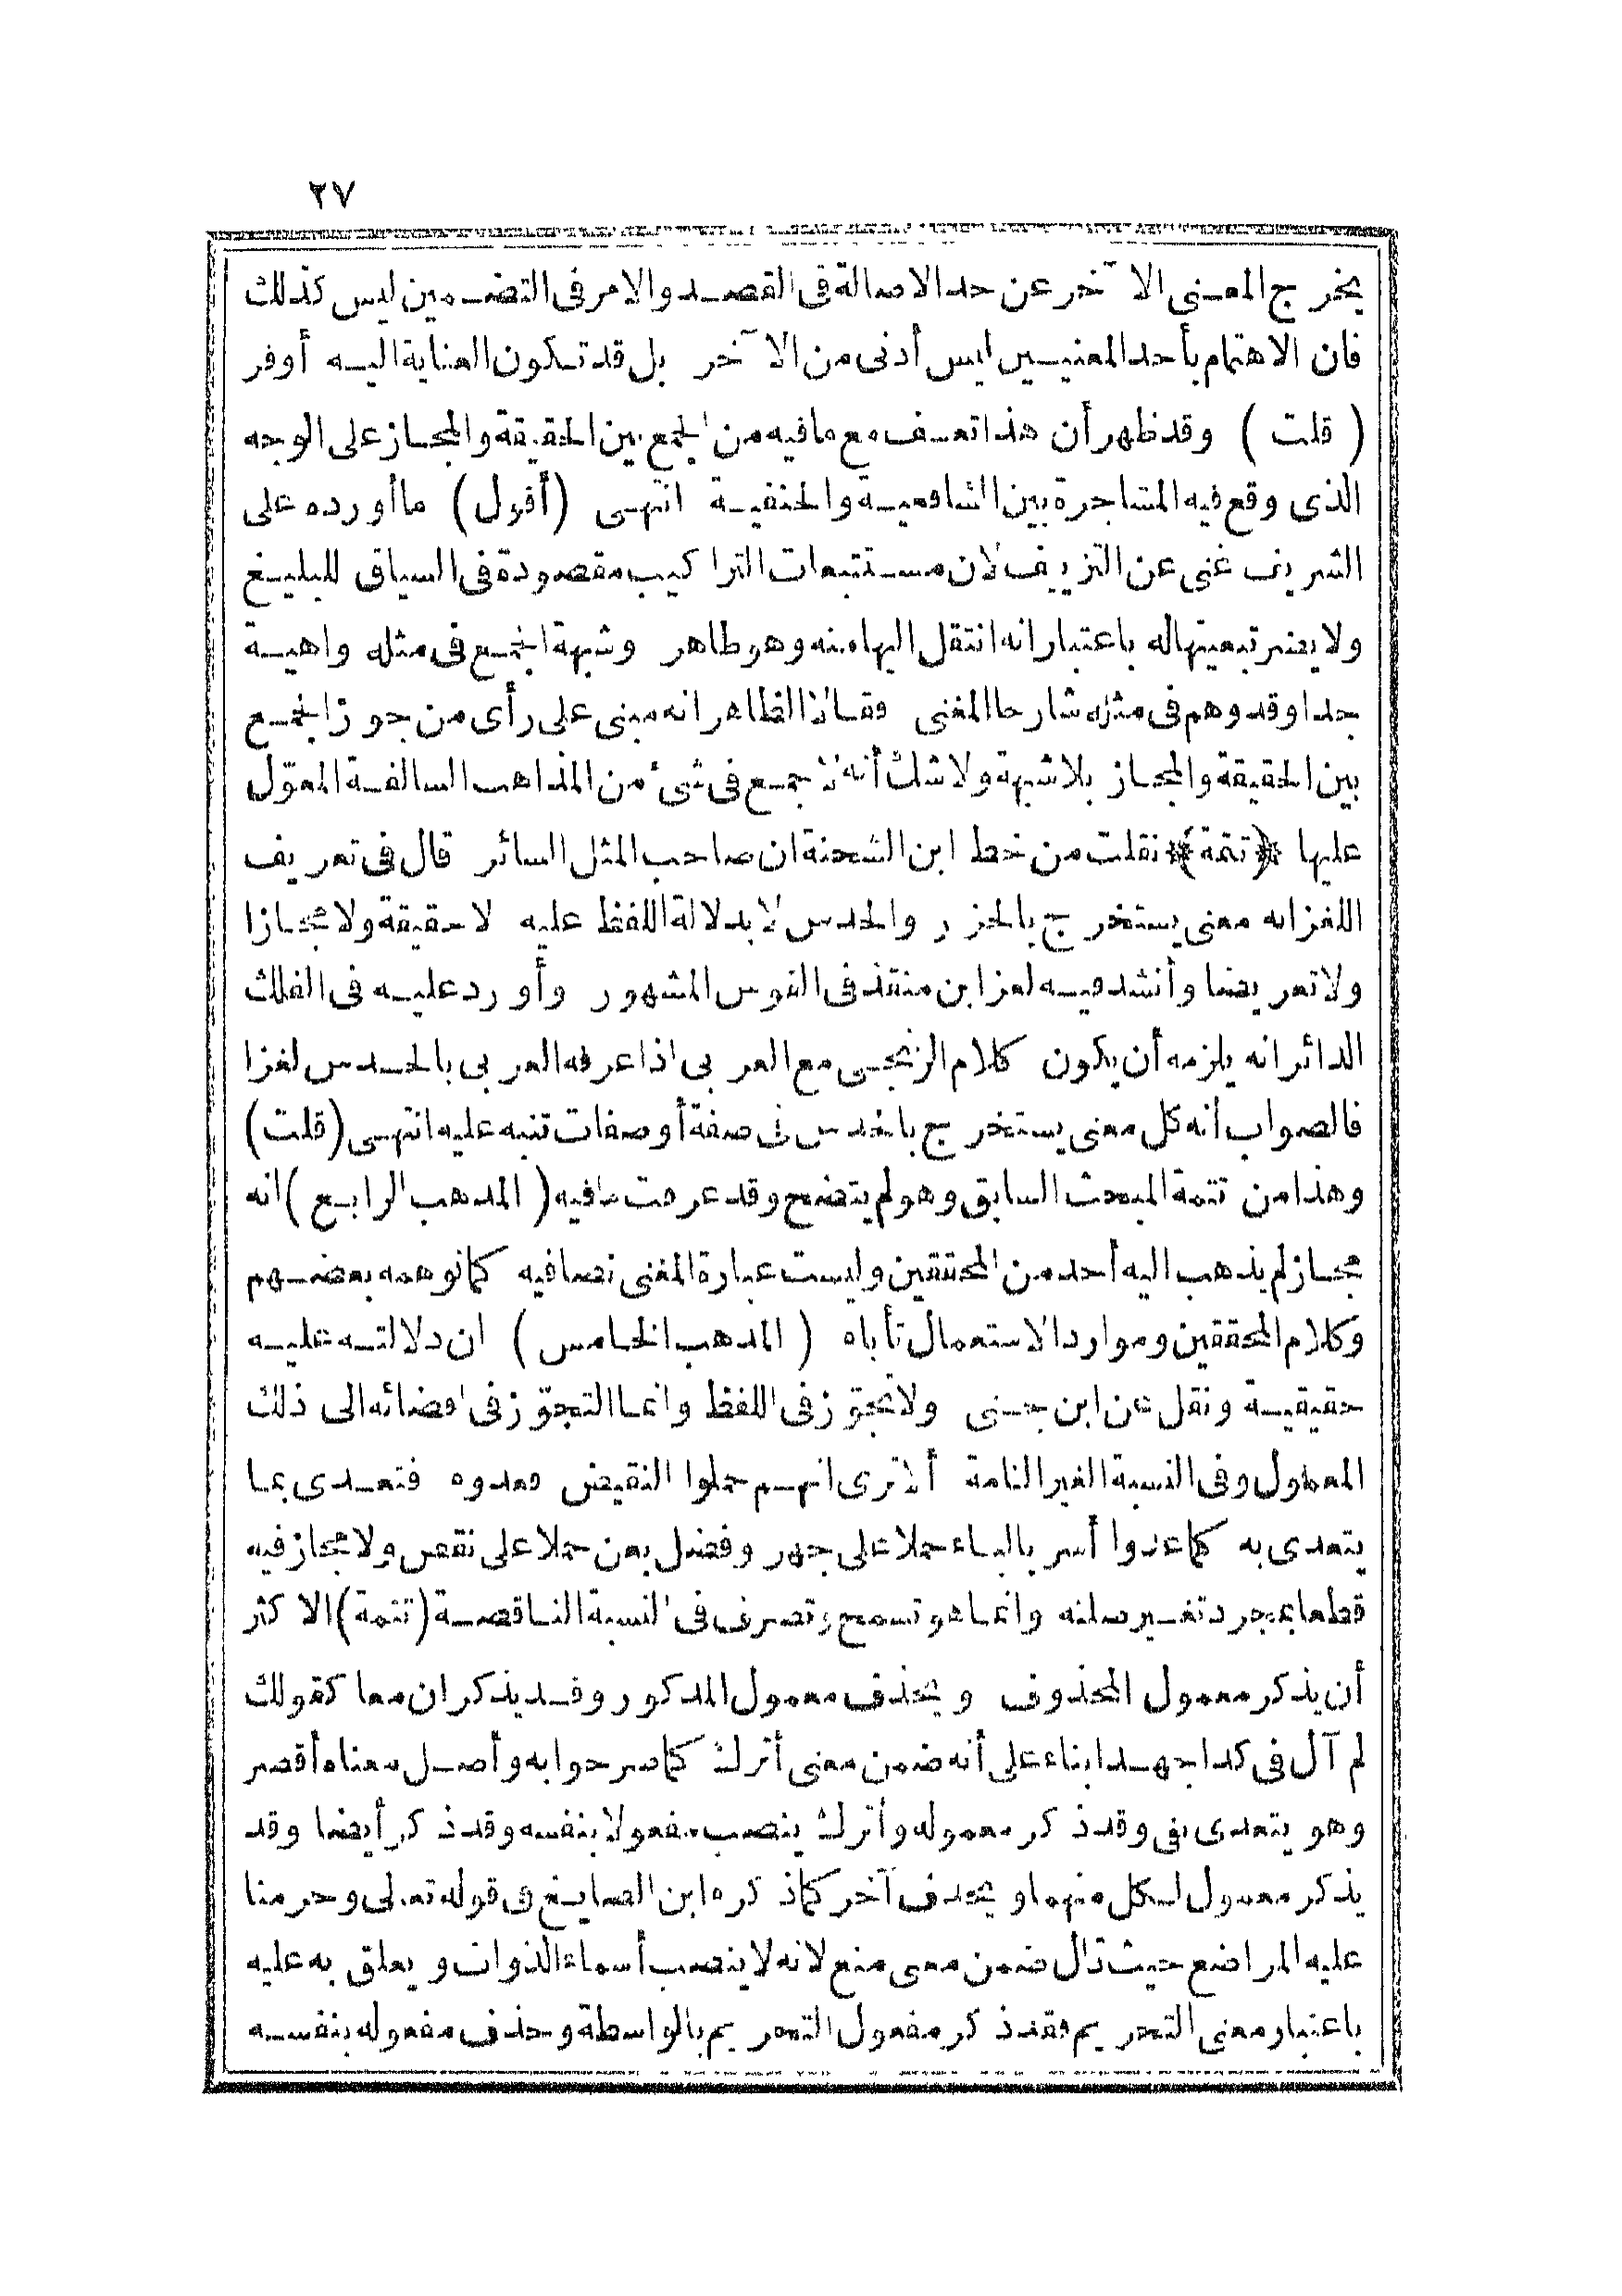 ٢٧
يخرج المعنى الآخر عن حد الاصالة فى القصد والامر فى التضمين ليس كذلك
فان الاهتمام بأحد المعنيين ليس أدنى من الآخر بل قد تكون العناية اليه أوفر
(قلت) وقد ظهر أن هذا تعسف مع ما فيه من الجمع بين الحقيقة والمجاز على الوجه
الذى وقع فيه المشاجرة بين الشافعية والحنفية انتهى (أقول) ما أورده على
الشريف غنى عن التزييف لان مستتبعات التراكيب مقصودة فى السياق للبليغ
ولا يضر تبعيتها له باعتبار انه انتقل اليها منه وهو ظاهر وشبهة الجمع فى مثله واهية
جدا وقد وهم فى مثله شارحا المغنى فقالا الظاهر انه مبنى على رأى من جوز الجمع
بين الحقيقة والمجاز بلا شبهة ولا شك أنه لا جمع فى شئ من المذاهب السالفة المعوّل
عليها ﴿تتمة﴾ نقلت من خط ابن الشحنة ان صاحب المثل السائر قال فى تعريف
اللغز انه معنى يستخرج بالحزر والحدس لا بدلالة اللفظ عليه لا حقيقة ولا مجازا
ولا تعريضا وأنشد فيه لغز ابن منقذ فى القوس المشهور وأورد عليه فى الفلك
الدائر انه يلزمه أن يكون كلام الزنجى مع العربى اذا عرفه العربى بالحدس لغزا
فالصواب أنه كل معنى يستخرج بالحدس فى صفة أو صفات تنبه عليه انتهى (قلت)
وهذا من تتمة المبحث السابق وهو لم يتضح وقد عرفت ما فيه (المذهب الرابع) انه
مجاز لم يذهب اليه أحد من المحققين وليست عبارة المغنى نصا فيه كما توهمه بعضهم
وكلام المحققين وموارد الاستعمال تأباه (المذهب الخامس) ان دلالته عليه
حقيقية ونقل عن ابن جنى ولا تجوّز فى اللفظ وانما التجوّز فى افضائه الى ذلك
المعمول وفى النسبة الغير التامة ألا ترى انهم حملوا النقيض فعدوه فتعدى بما
يتعدى به كما عدوا أسر بالباء حملا على جهر وفضل بعن حملا على نقص ولا مجاز فيه
قطعا بمجرد تغيير صلته وانما هو تسمح وتصرف فى النسبة الناقصة (تتمة) الاكثر
أن يذكر معمول المحذوف ويحذف معمول المذكور وقد يذكران معا كقولك
لم آل فى كذا جهدا بناء على أنه ضمن معنى أترك كما صرحوا به وأصل معناه أقصر
وهو يتعدى بفى وقد ذكر معموله وأترك ينصب مفعولا بنفسه وقد ذكر أيضا وقد
يذكر معمول لكل منهما ويحذف آخر كما ذكره ابن الصايغ فى قوله تعالى وحرمنا
عليه المراضع حيث قال ضمن معنى منع لانه لا ينصب أسماء الذوات ويعلق به عليه
باعتبار معنى التحريم فقد ذكر مفعول التحريم بالواسطة وحذف مفعوله بنفسه